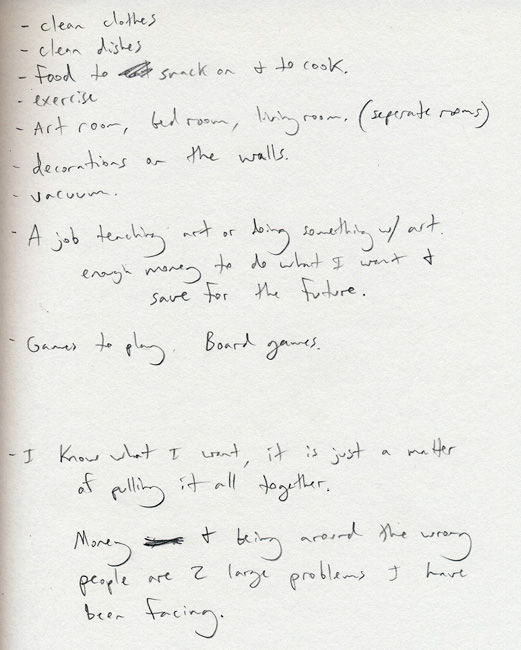 - clean clothes
- clean dishes
- Food to snack on & to cook.
- exercise
- Art room, bedroom, living room. (seperate rooms)
- decorations on the walls.
- vacuum.
- A job teaching art or doing something w/ art.
enough money to do what I want &
save for the future.
- Games to play. Board games.
- I know what I want, it is just a matter
of pulling it all together.
Money & being around the wrong
people are 2 large problems I have
been facing.